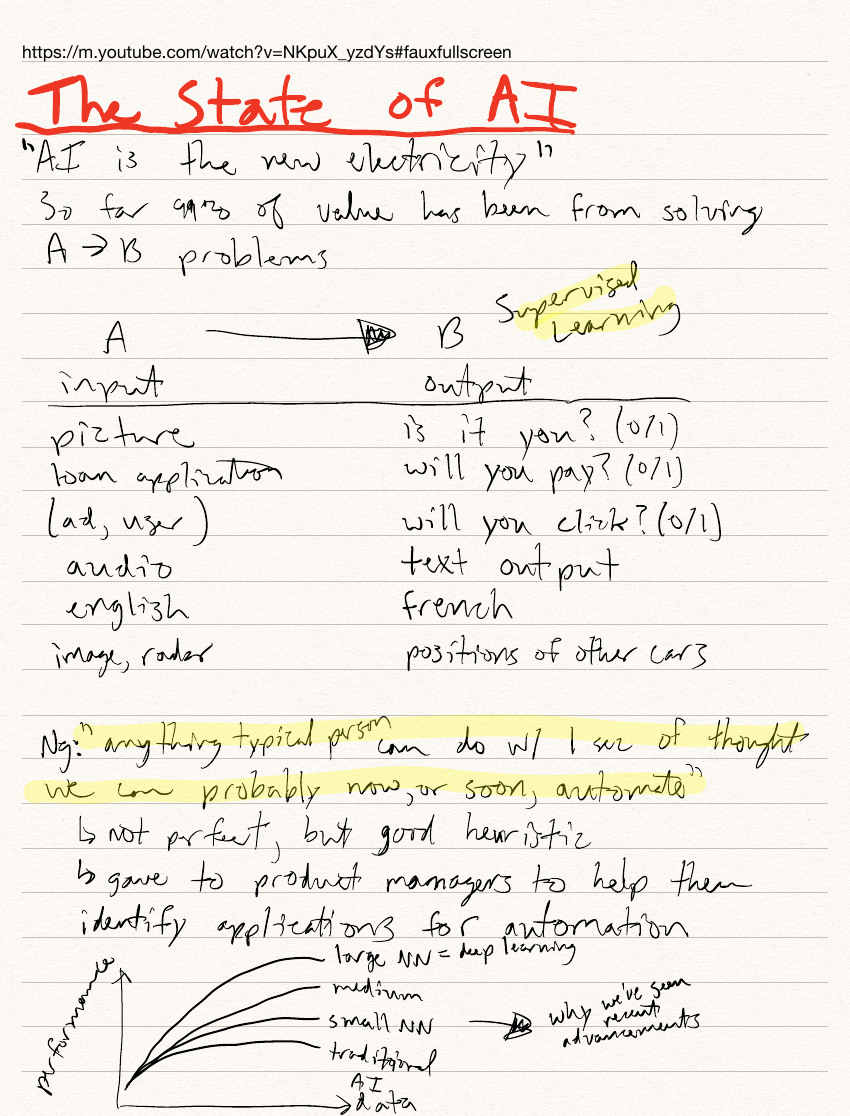 https://m.youtube.com/watch?v=NKpuX_yzdYs#fauxfullscreen
The State of AI
"AI is the new electricity"
So far 99% of value has been from solving
A → B problems
Supervised
Learning
A → B
input output
picture is it you? (0/1)
loan application will you pay? (0/1)
(ad, user) will you click? (0/1)
audio text output
english french
image, radar positions of other cars
Ng: "anything typical person can do w/ 1 sec of thought
we can probably now, or soon, automate"
↳ not perfect, but good heuristic
↳ gave to product managers to help them
identify applications for automation
performance
large NN = deep learning
medium
small NN → why we've seen
recent
advancements
traditional
AI
data